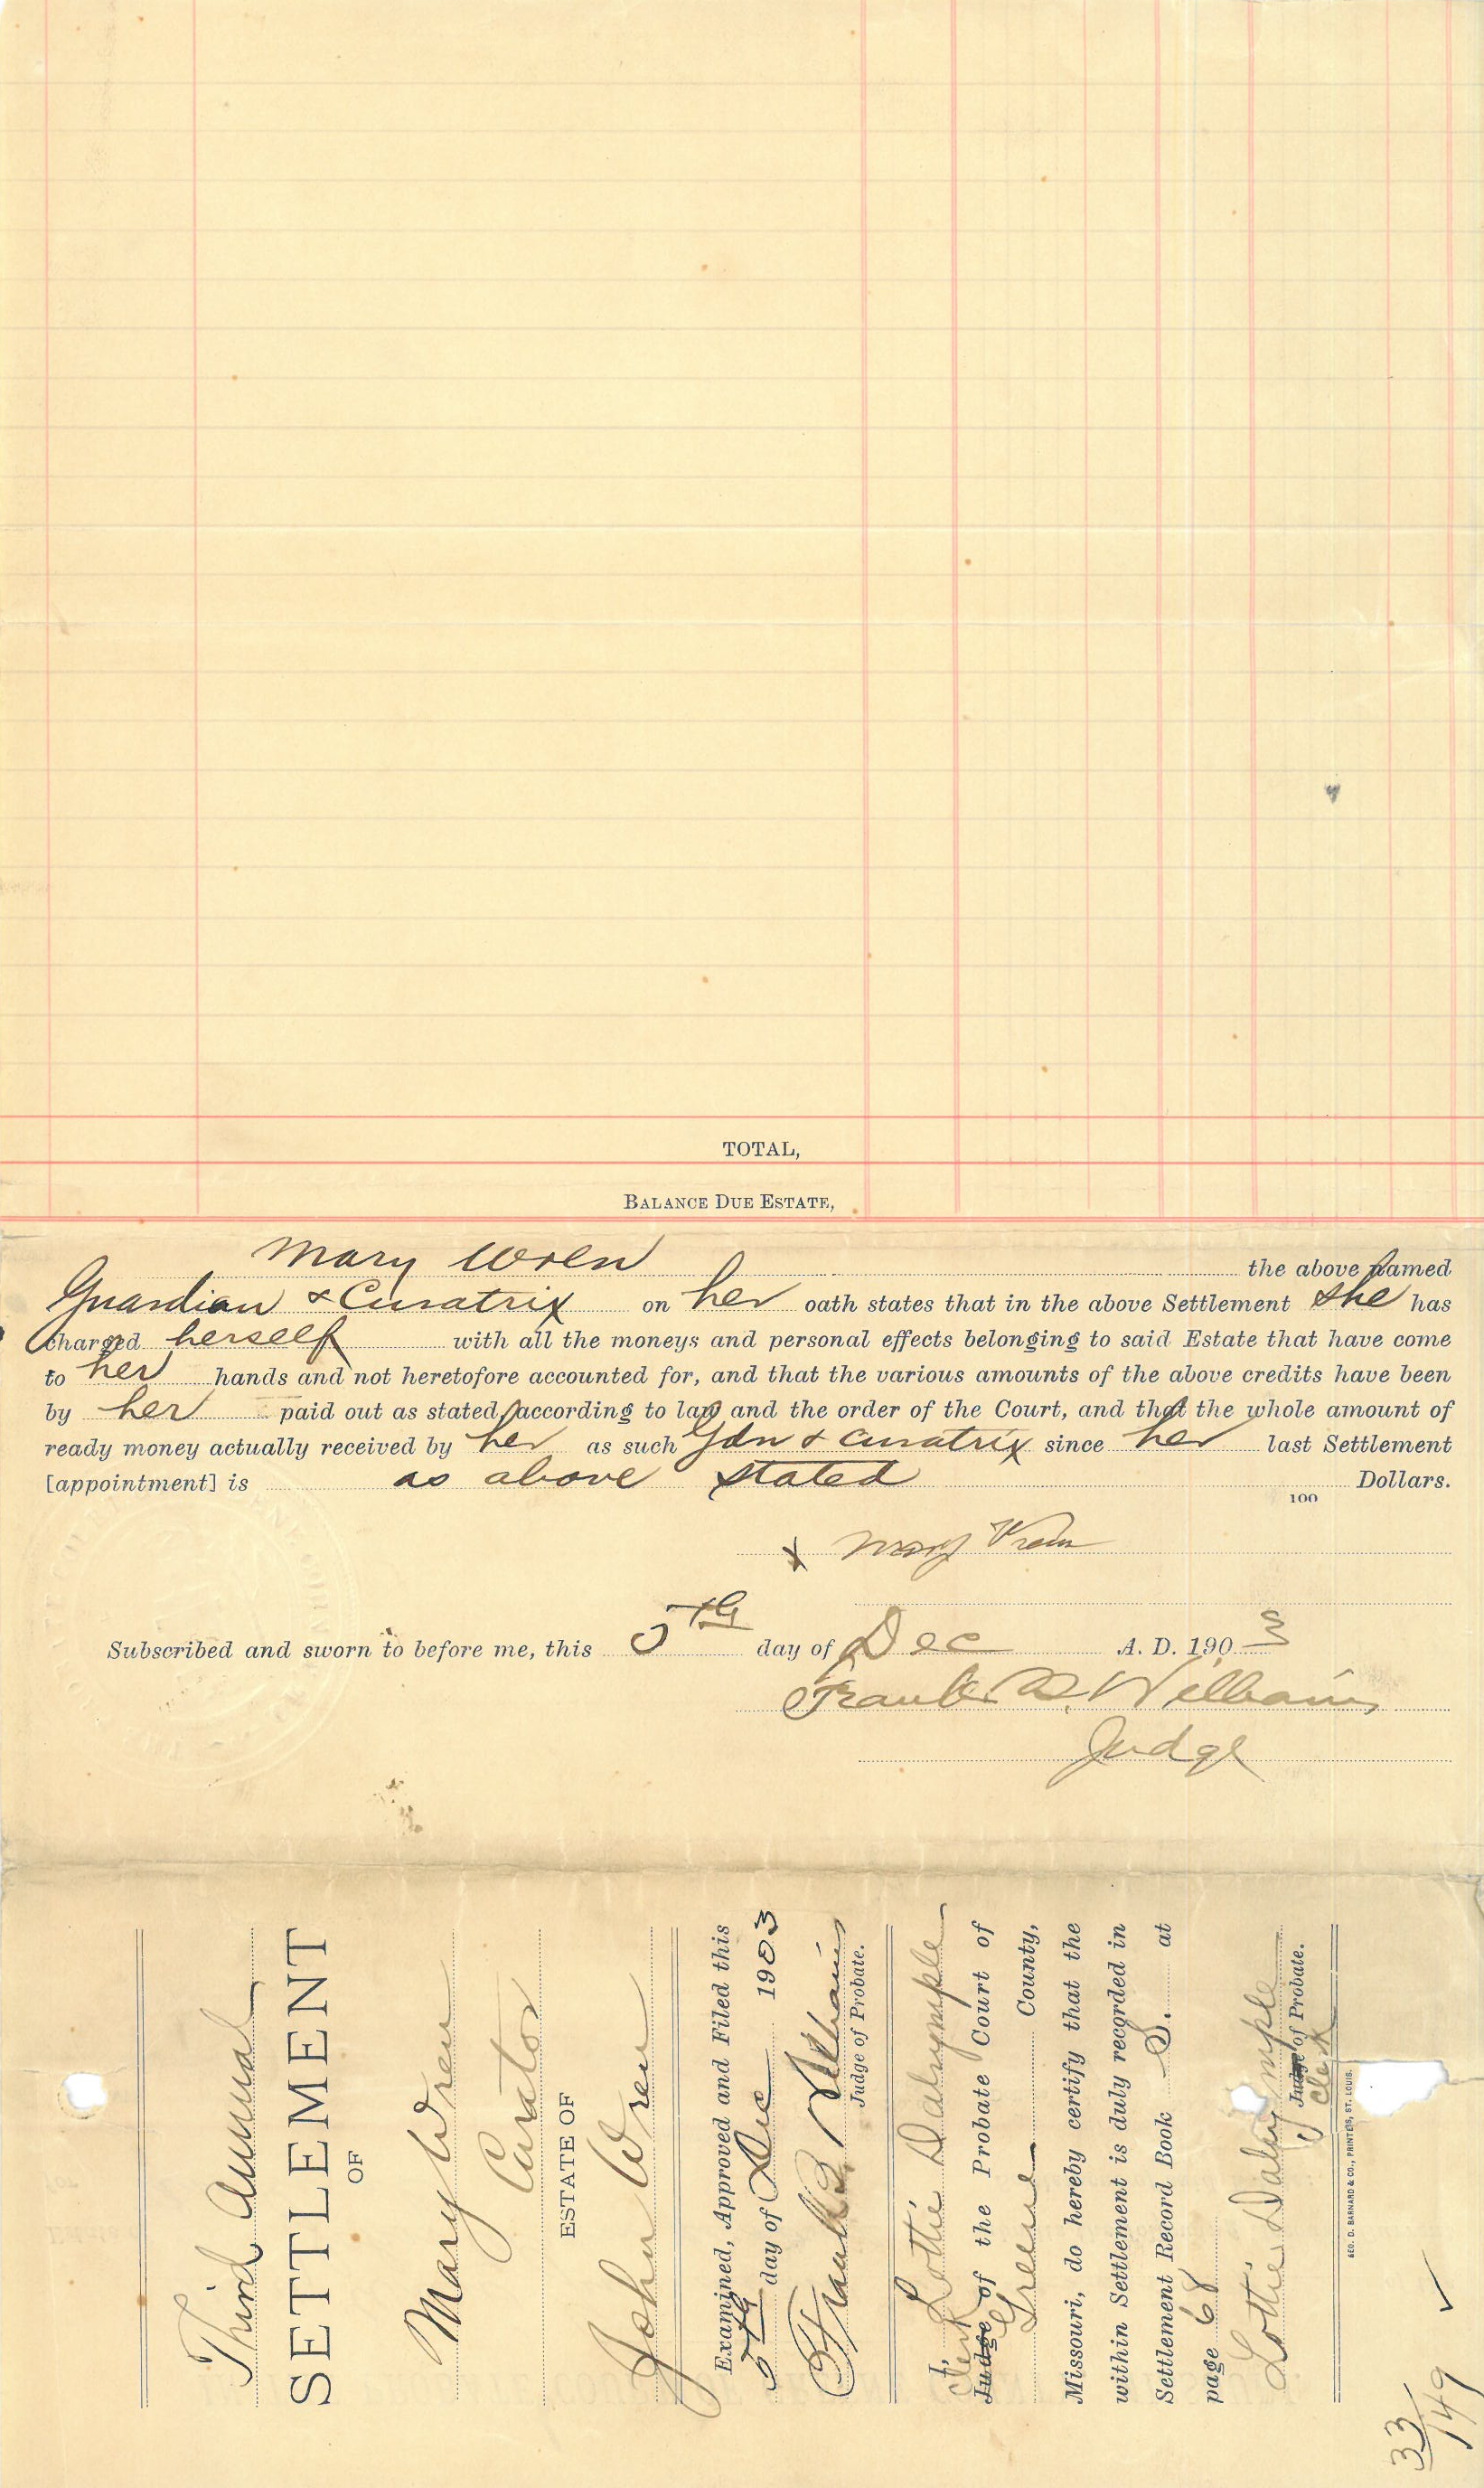 TOTAL,
BALANCE DUE ESTATE,
Mary Wren the above named
Guardian & Curatrix on her oath states that in the above Settlement she has
charged herself with all the moneys and personal effects belonging to said Estate that have come
to her hands and not heretofore accounted for, and that the various amounts of the above credits have been
by her paid out as stated, according to law and the order of the Court, and that the whole amount of
ready money actually received by her as such Gdn & Curatrix since her last Settlement
[appointment] is as above stated Dollars.
100
x Mary Wren
Subscribed and sworn to before me, this 5th day of Dec A. D. 1903
Frank B. Williams
Judge
Third Annual
SETTLEMENT
OF
Mary Wren
Curator
ESTATE OF
John Wren
Examined, Approved and Filed this
5th day of Dec 1903
Frank B. Williams
Judge of Probate.
I, Lottie Dalrymple
Clerk
Judge of the Probate Court of
Greene County,
Missouri, do hereby certify that the
within Settlement is duly recorded in
Settlement Record Book S. at
page 68
Lottie Dalrymple
Judge of Probate.
Clerk
GEO. D. BARNARD & CO., PRINTERS, ST. LOUIS.
33
149